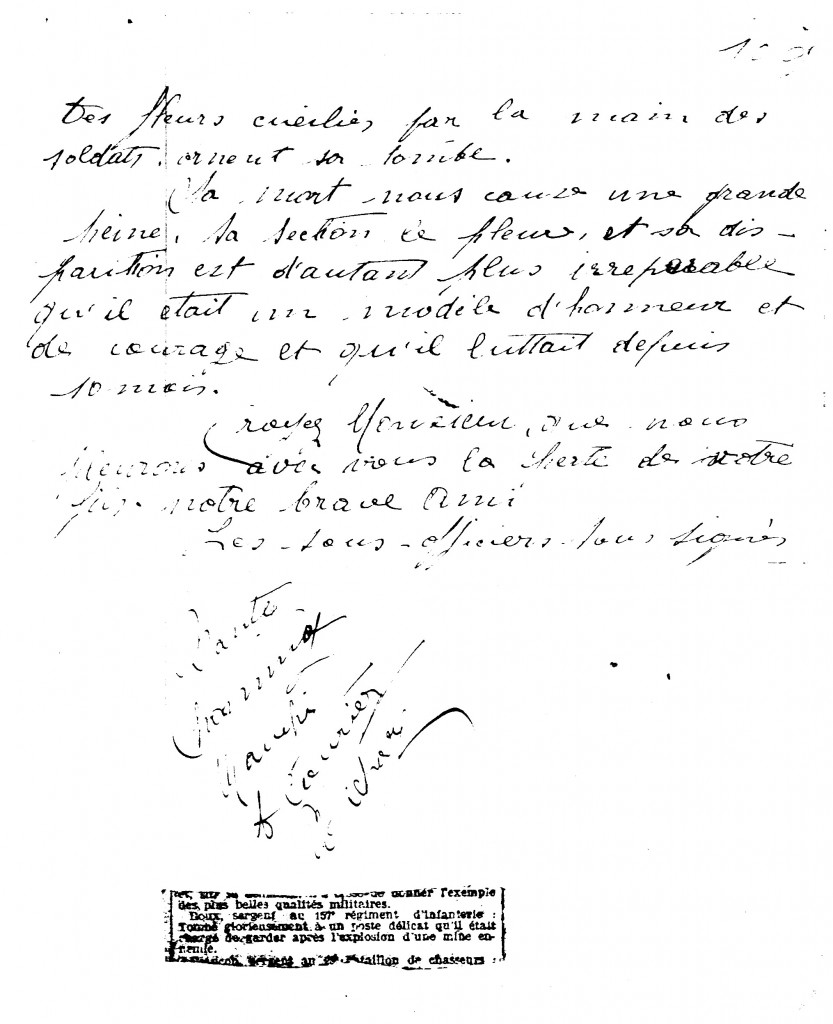 Des fleurs cueillies par la main des
soldats ornent sa tombe.
Sa mort nous cause une grande
peine, sa section le pleure, et sa dis-
parition est d'autant plus irreparable
qu'il était un modèle d'honneur et
de courage et qu'il luttait depuis
10 mois.
Croyez Monsieur, que nous
pleurons avec vous la perte de votre
fils notre brave ami
Les sous-officiers sous signés
donner l'exemple
des plus belles qualités militaires.
Doux, sergent au 157e régiment d'infanterie :
Tombé glorieusement à un poste délicat qu'il était
chargé de garder après l'explosion d'une mine en-
nemie.
bataillon de chasseurs :